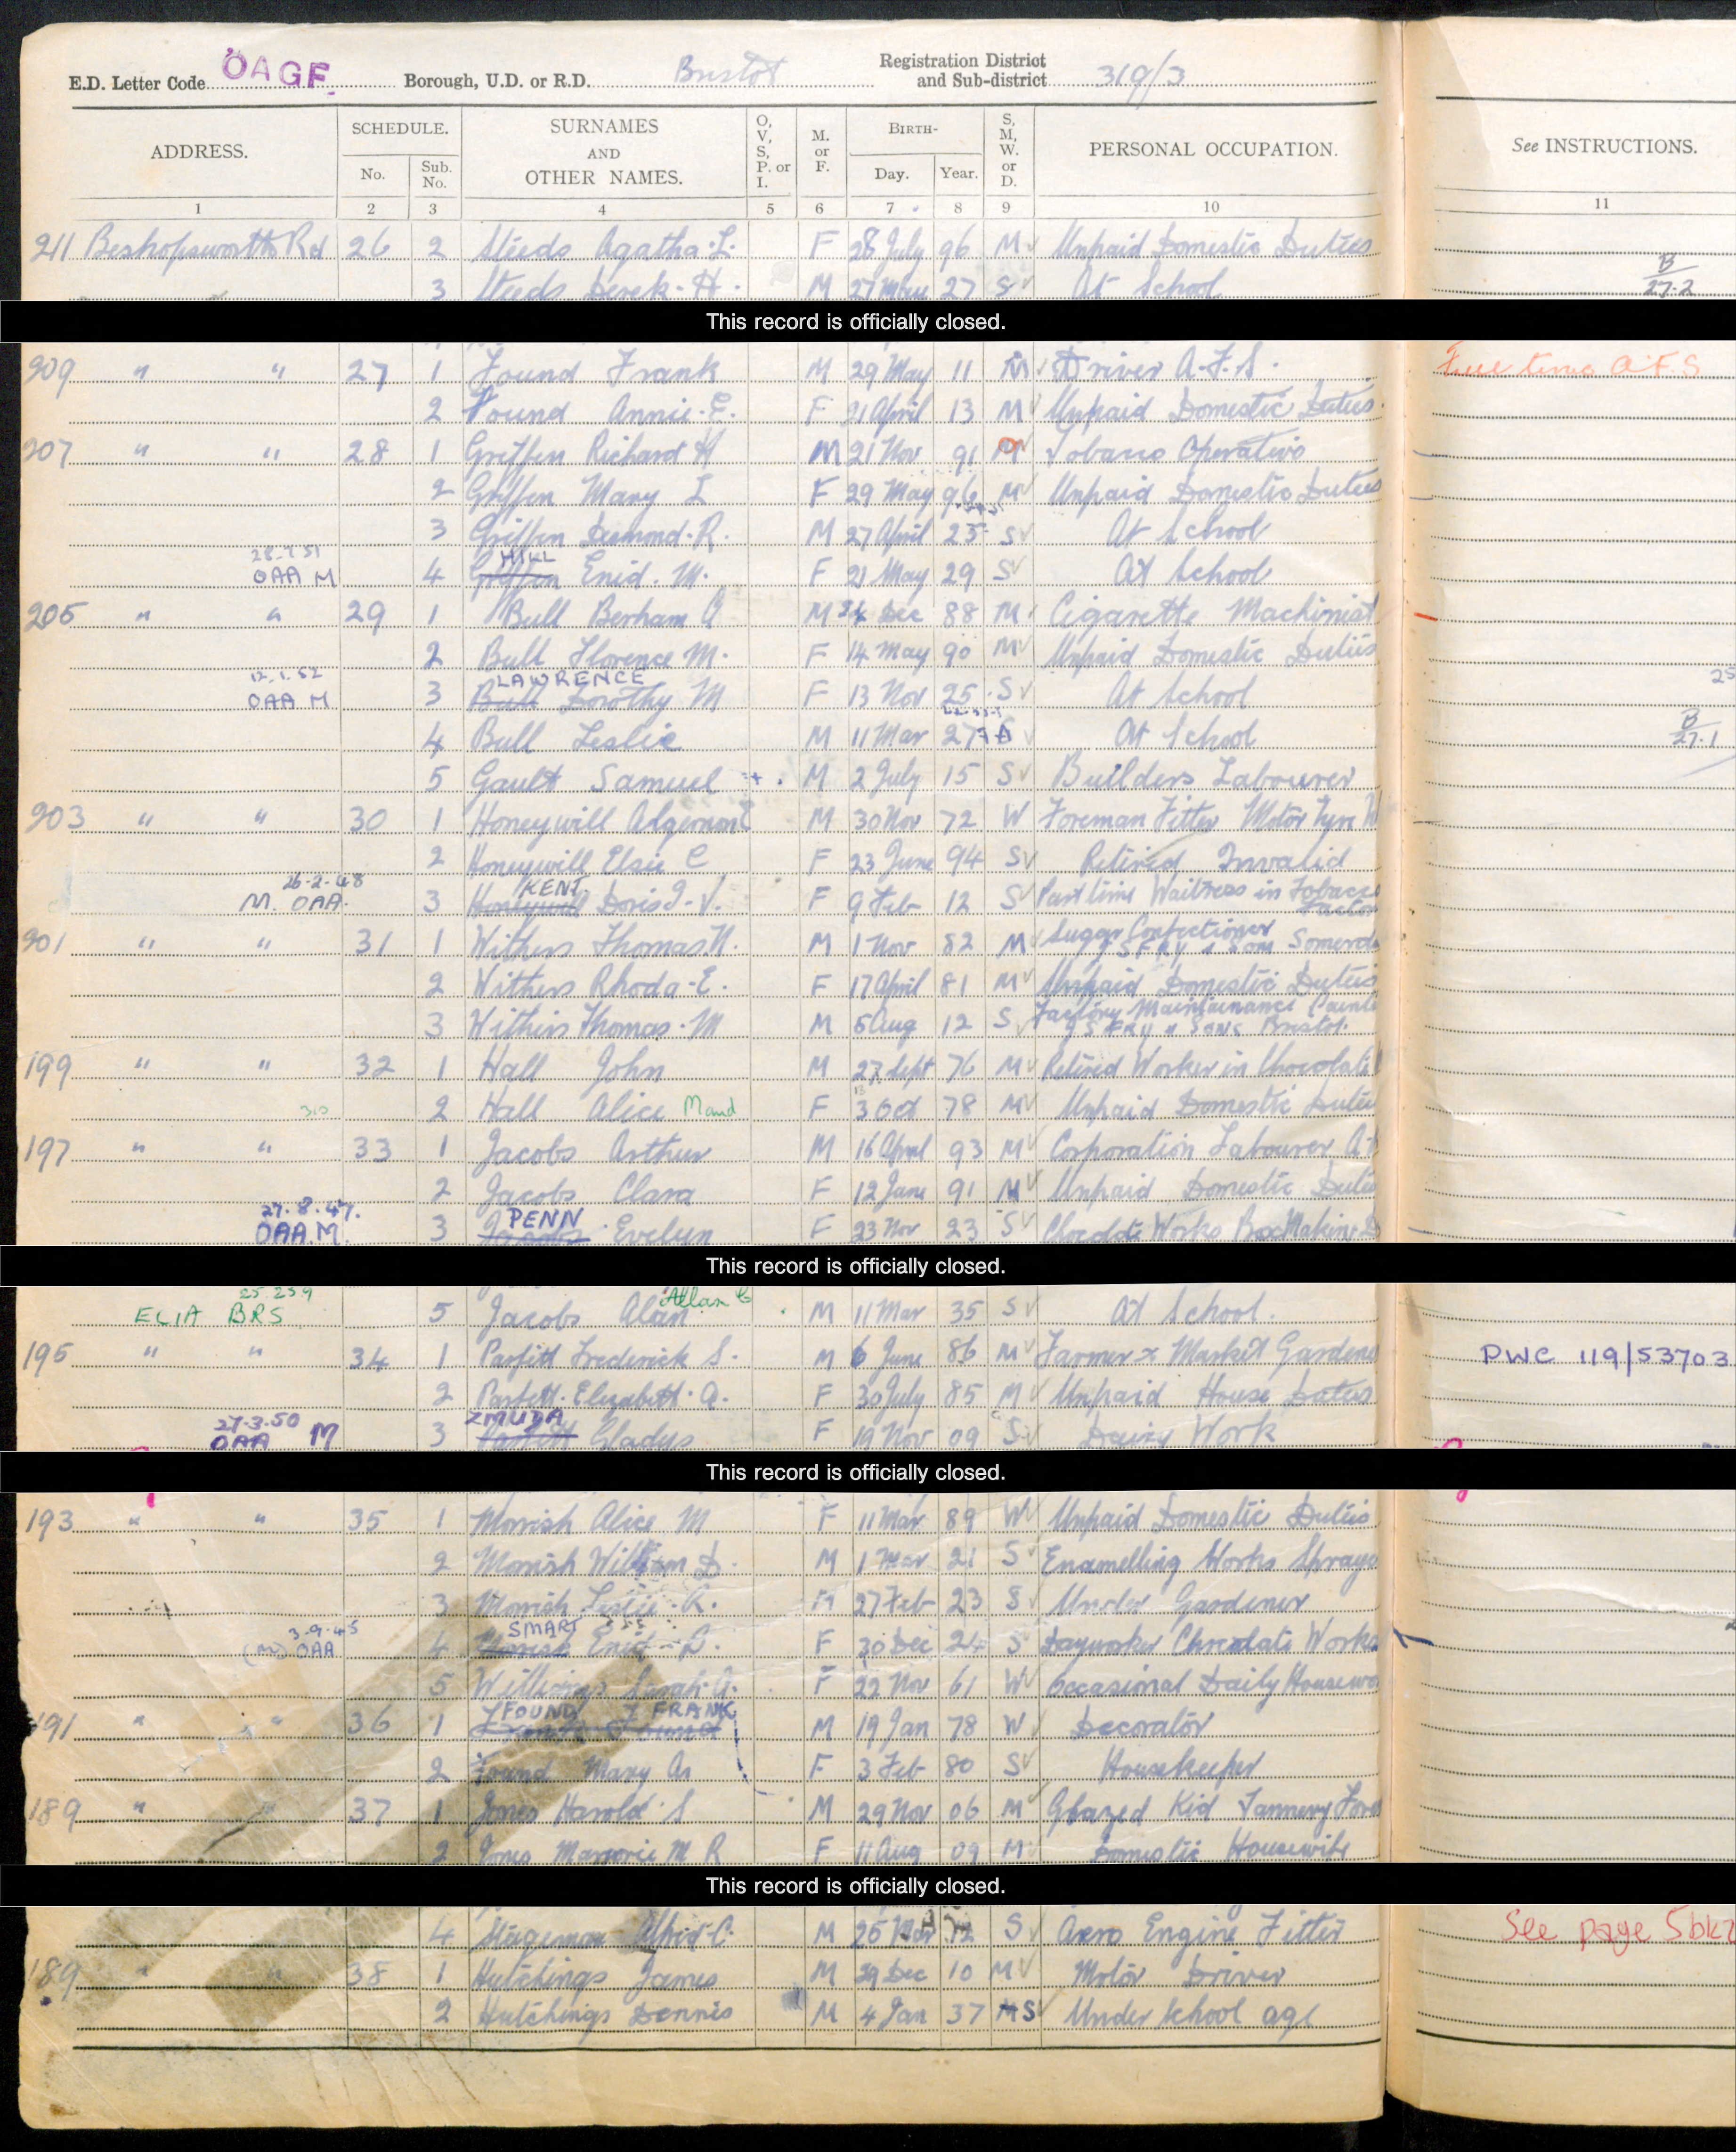 E.D. Letter Code OAGF Borough, U.D. or R.D. Bristol Registration District and Sub-district 319/3
ADDRESS. SCHEDULE. No. Sub. No. SURNAMES AND OTHER NAMES. O, V, S, P. or I. M. or F. BIRTH- Day. Year. S, M, W. or D. PERSONAL OCCUPATION. See INSTRUCTIONS.
1 2 3 4 5 6 7 8 9 10 11
211 Beshopsworth Rd 26 2 Steeds Agatha. L. F 28 July 96 M Unpaid Domestic Duties
3 Steeds Derek. H. M 27 27 S At School B 27.2
This record is officially closed.
209 " " 27 1 Found Frank M 29 May 11 M Driver A.F.S. Full time A.F.S
2 Found Annie. E. F 21 April 13 M Unpaid Domestic Duties.
207 " " 28 1 Griffen Richard H M 21 Nov 91 M Tobacco Operative
2 Griffen Mary I F 29 May 96 M Unpaid Domestic Duties
3 Griffen Desmond. R. M 27 April 25 S At School
28.7.51 HILL
OAA M 4 Griffen Enid. M. F 21 May 29 S At School
205 " " 29 1 Bull Berham A M Dec 88 M Cigarette Machinist
2 Bull Florence M. F 14 May 90 M Unpaid Domestic Duties
12.1.52 LAWRENCE 25
OAA M 3 Bull Dorothy M F 13 Nov 25 S At School
4 Bull Leslie M 11 Mar 27 At School B 27.1
5 Gault Samuel M 2 July 15 S Builders Labourer
203 " " 30 1 Honeywill Algernon M 30 Nov 72 W Foreman Fitter Motor Tyre W
2 Honeywill Elsie C F 23 June 94 S Retired Invalid
26-2-48 KENT
M. OAA. 3 Honeywill Doris I. V. F 9 Feb 12 S Part time Waitress in Tobacco
201 " " 31 1 Withers Thomas. N. M 1 Nov 82 M Sugar Confectioner
J S FRY & SON Somerd
2 Withers Rhoda. E. F 17 April 81 M Unpaid Domestic Duties
3 Withers Thomas. M M 6 Aug 12 S Factory Maintainance Paint
J S FRY & SONS Bristol.
199 " " 32 1 Hall John M 27 Sept 76 M Retired Worker in Chocolate
2 Hall Alice Maud F 3 Oct 78 M Unpaid Domestic Duties
197 " " 33 1 Jacobs Arthur M 16 April 93 M Corporation Labourer
2 Jacobs Clara F 12 June 91 M Unpaid Domestic Duties
27.8.47. PENN
OAA.M. 3 Jacobs Evelyn F 23 Nov 23 S Chocolate Works Box Making D
This record is officially closed.
25.239 Allan G
ELIA BRS 5 Jacobs Alan M 11 Mar 35 S At School.
195 " " 34 1 Parfitt Frederick S. M 6 June 86 M Farmer & Market Gardene PWC 119/53703
2 Parfitt. Elizabeth. A. F 30 July 85 M Unpaid House Duties
27.3.50 ZMUDA
OAA M 3 Parfitt Gladys F 19 Nov 09 S Dairy Work
This record is officially closed.
193 " " 35 1 Morrish Alice M F 11 Mar 89 W Unpaid Domestic Duties
2 Morrish William D. M 1 Mar 21 S Enamelling Works Spraye
3 Morrish Leslie. R. M 27 Feb 23 S Under Gardener
3-9-45 SMART
(M) OAA 4 Morrish Enid D. F 30 Dec 24 S Dayworker Chocolate Works
5 Sarah. A. F 22 Nov 61 W Occasional Daily Housewo
FOUND FRANK
191 " " 36 1 M 19 Jan 78 W Decorator
2 Found Mary A F 3 Feb 80 S Housekeeper
189 " " 37 1 Jones Harold S M 29 Nov 06 M Glazed Kid Tannery Fore
2 Jones Marjorie M R F 11 Aug 09 M Domestic Housewife
This record is officially closed.
4 C. M 25 12 S Aero Engine Fitter See page 5
189 " " 38 1 Hutchings James M 29 Dec 10 M Motor Driver
2 Hutchings Dennis M 4 Jan 37 S Under School age